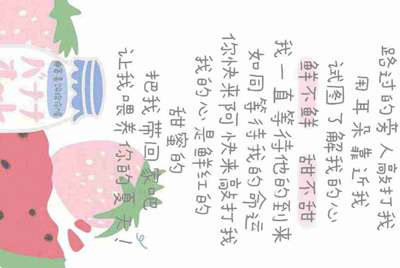 路过的旁人敲打我
用耳朵靠近我
试图了解我的心
鲜不鲜 甜不甜
我一直等待他的到来
如同等待我的命运
你快来阿快来敲打我
我的心是鲜红的
甜蜜的
把我带回家吧
让我喂养你的夏天!
バナナ